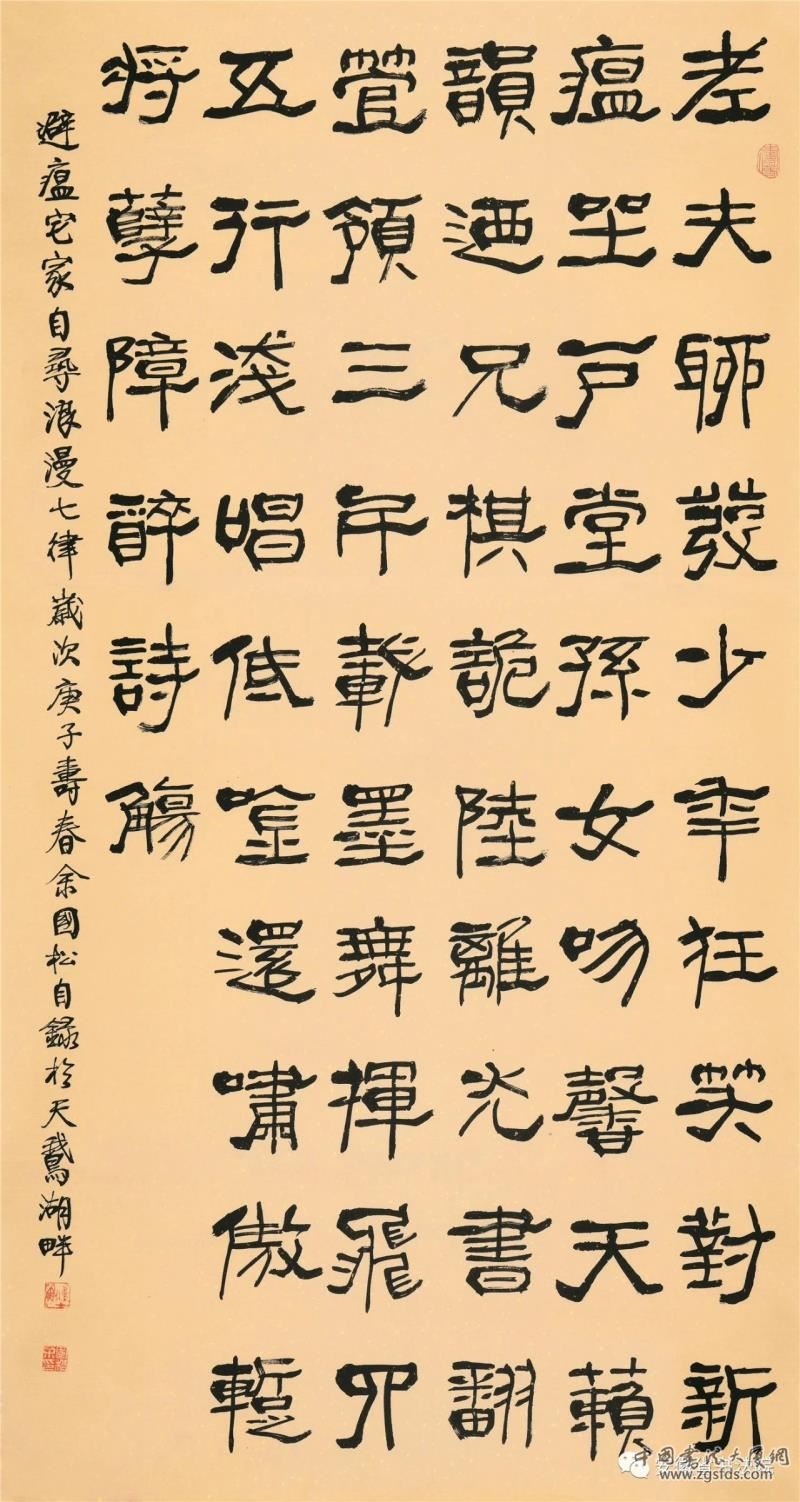 老夫聊發少年狂笑對新
瘟坐户堂孫女吻馨天籟
韻迺兄棋詭陸離光書翻
管領三千載墨舞揮飛四
五行淺唱低吟還嘯傲暫
將孽障醉詩觴
避瘟宅家自尋浪漫七律歲次庚子壽春余國松自錄於天鵝湖畔
中國書法大廈網
www.zgsfds.com